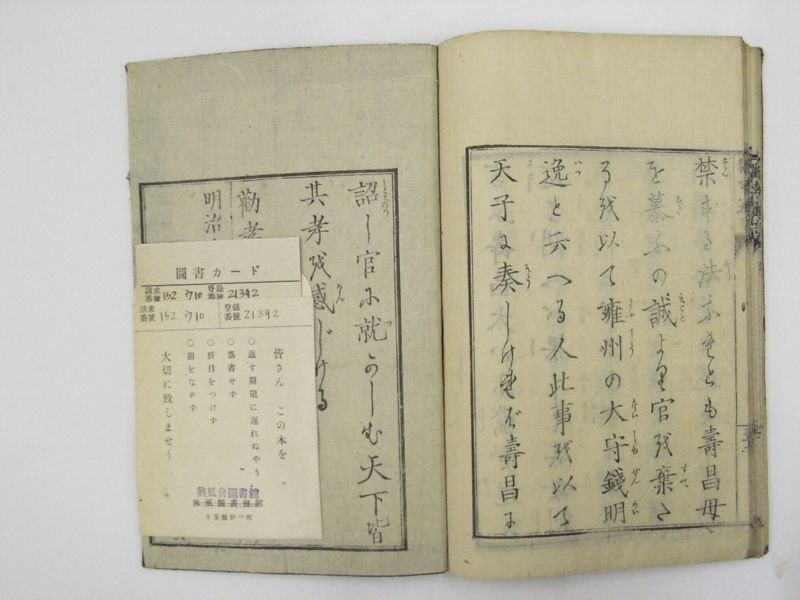 禁ずる法なれども壽昌母
を慕ふの誠より官を棄た
るを以て雍州の大守錢明
逸と云へる人此事を以て
天子に奏しければ壽昌に
詔し官に就かしむ天下皆
其孝を感じける
勸孝
明治
圖書カード
請求番號 152 ウ10 登錄番號 21392
請求番號 152 ウ10 登錄番號 21392
皆さん この本を
○返す期限に遲れぬやう
○落書せず
○折目をつけず
○指をなめず
大切に致しませう
興風會圖書館
興風圖書會館
千葉縣野田町